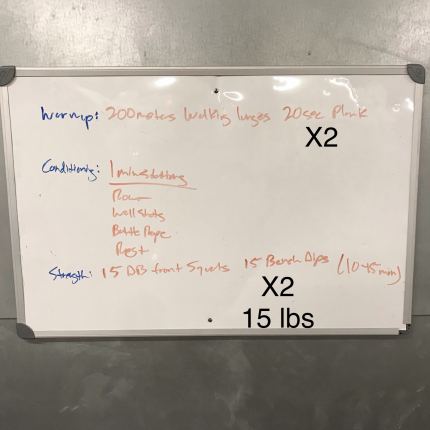 Warmup: 200meters Walking lunges 20sec Plank
X2
Conditioning: 1 min stations
Row
Wall shots
Battle Rope
Rest
Strength: 15 DB front Squats 15 Bench Dips
X2
15 lbs